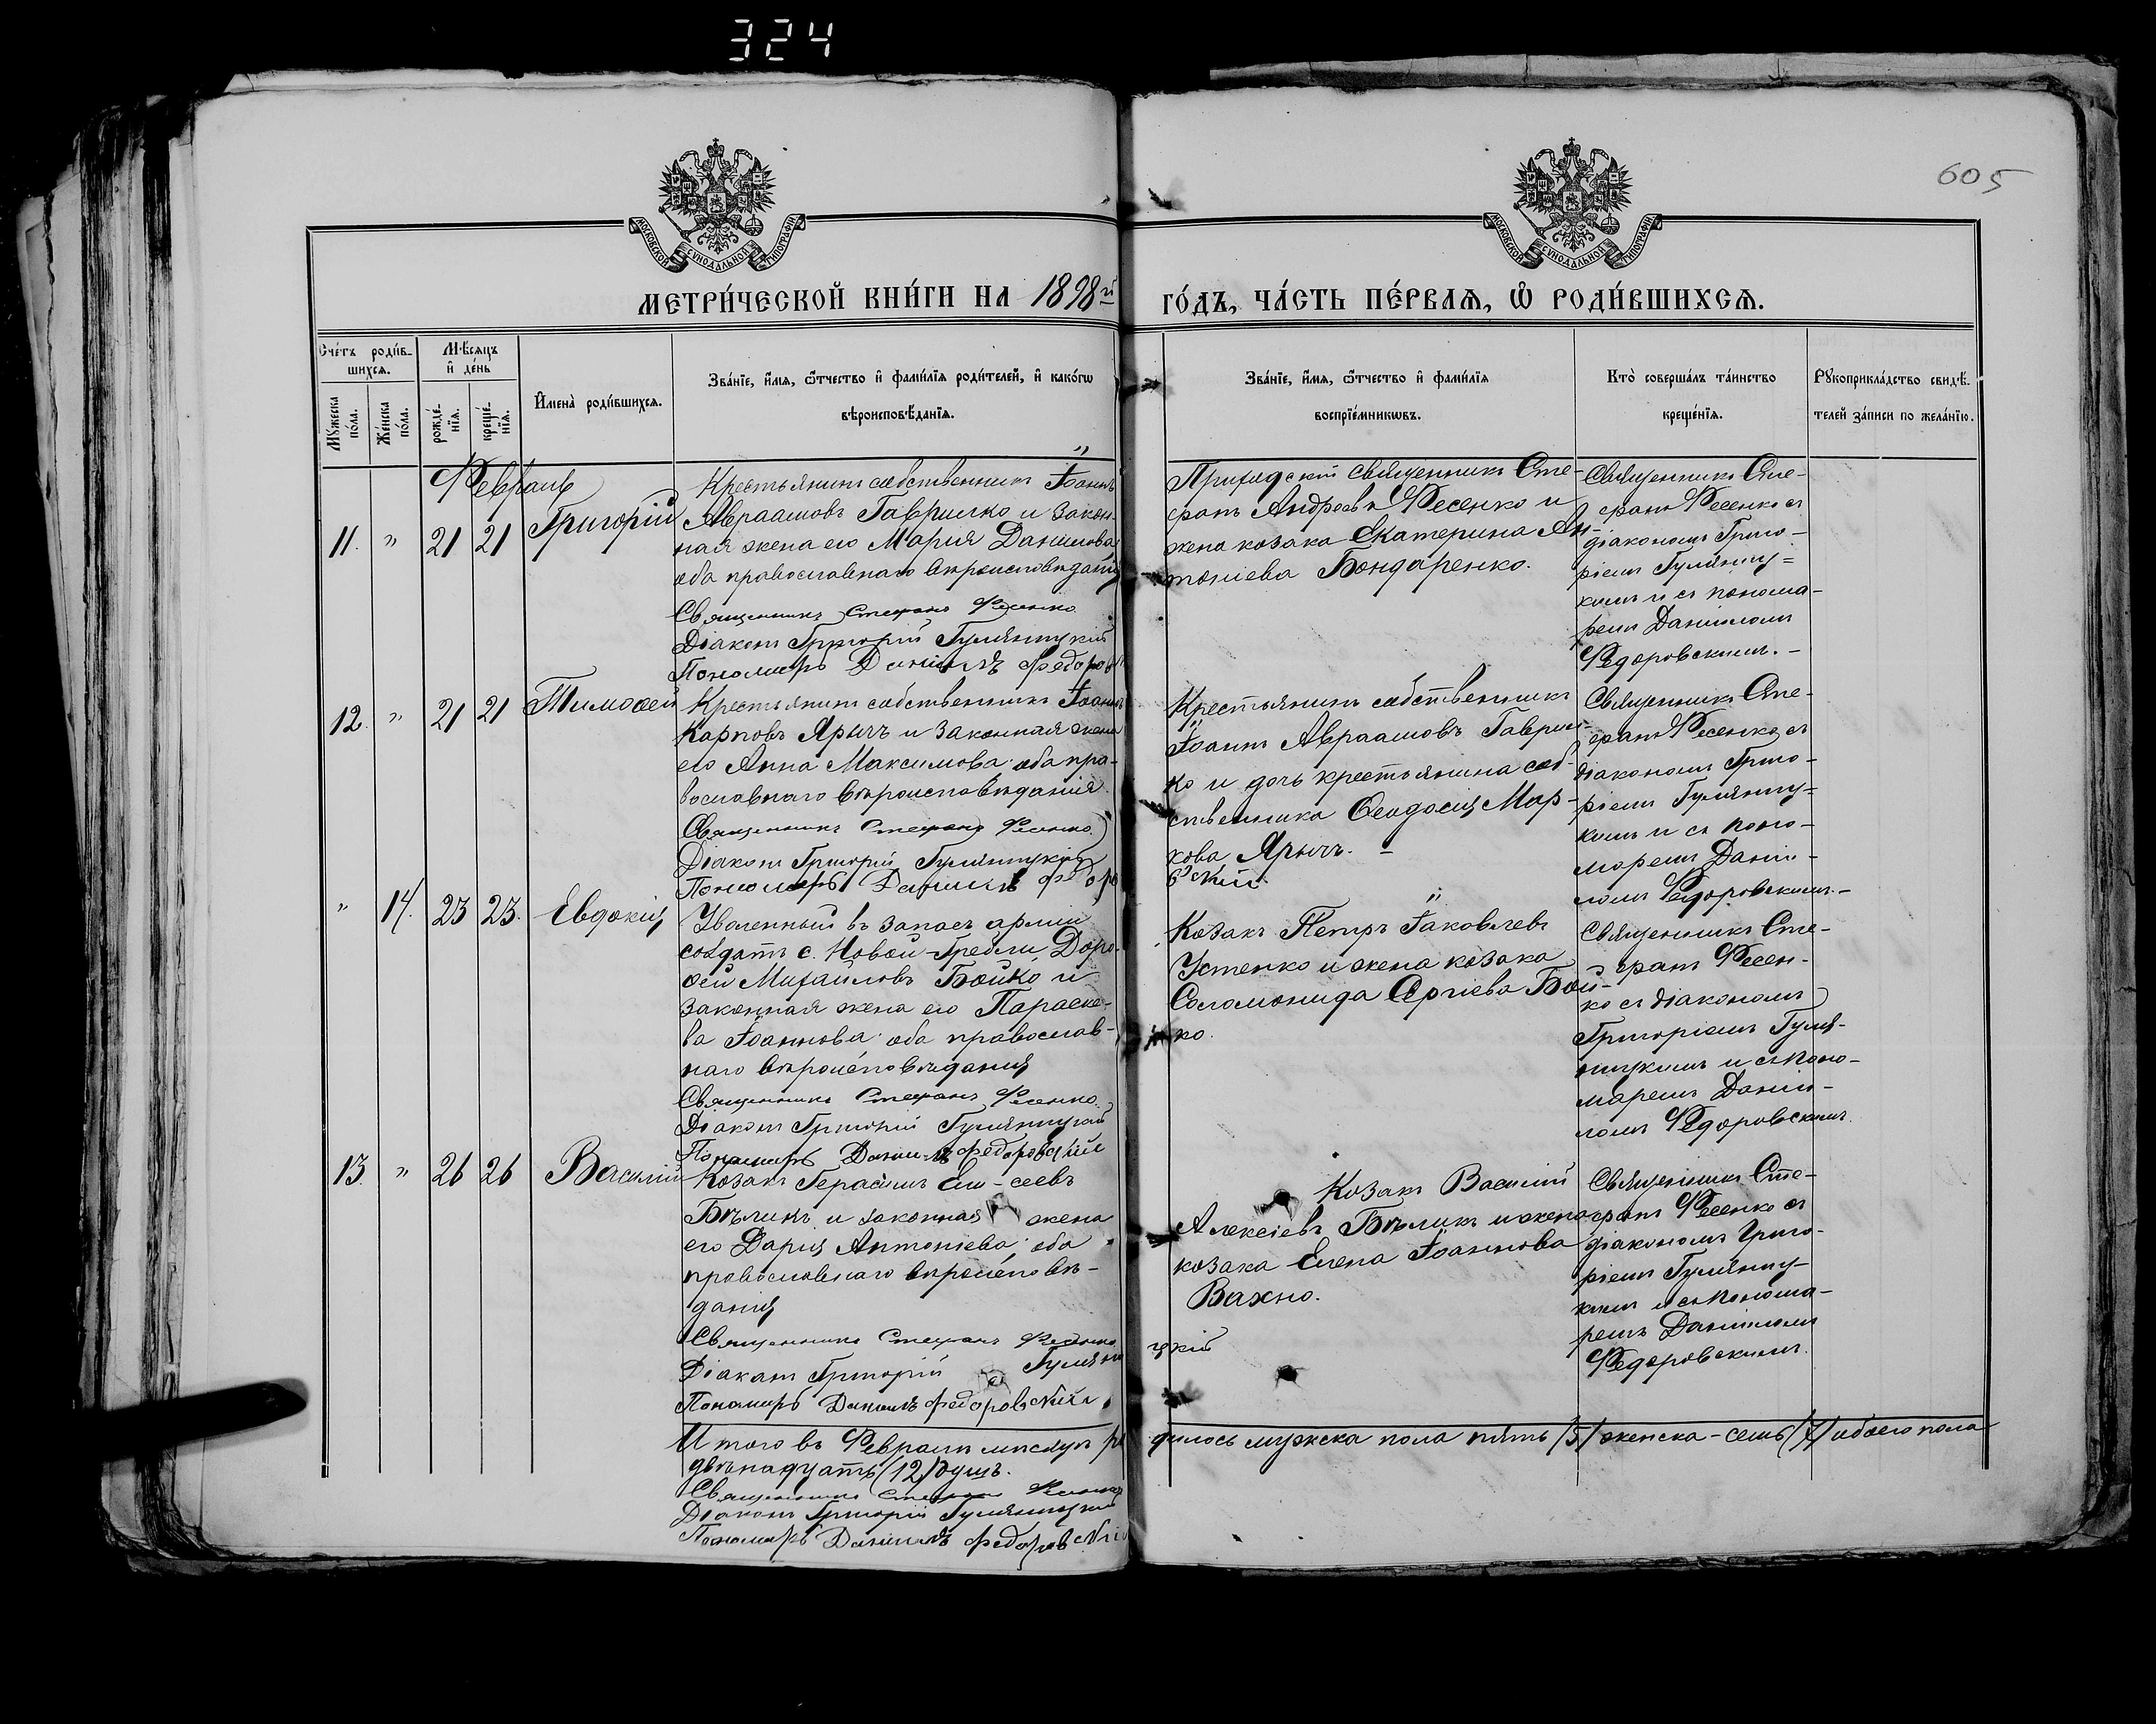 324
605
МОСКОВСКОЙ СѴНОДАЛЬНОЙ ТИПОГРАФІИ
МОСКОВСКОЙ СѴНОДАЛЬНОЙ ТИПОГРАФІИ
МЕТРИ́ЧЕСКОЙ КНИ́ГИ НА 1898й
ГО́ДЪ, ЧА́СТЬ ПЕ́РВАѦ, Ѡ҆ РОДИ́ВШИХСѦ.
Сче́тъ роди́в-
шихсѧ.
Мꙋжеска по́ла.
Же́нска по́ла.
Мѣ́сѧцъ
и҆ де́нь
рожде́-
нїѧ.
креще́-
нїѧ.
И҆мена̀ роди́вшихсѧ.
Зва́нїе, и҆́мѧ, ѻ҆́тчество и҆ фами́лїѧ роди́телей, и҆ како́гѡ
вѣроисповѣ́данїѧ.
Зва́нїе, и҆́мѧ, ѻ҆́тчество и҆ фами́лїѧ
воспрїе́мникѡвъ.
Кто̀ соверша́лъ та́инство
креще́нїѧ.
Рꙋкоприкла́дство свидѣ́-
телей за́писи по жела́нїю.
Февраль
11. " 21 21 Григорій
Крестьянинъ собственникъ Іоаннъ
Авраамовъ Гаврилко и закон-
ная жена его Марія Данилова
оба православнаго вѣроисповѣданія
Священникъ Стефанъ Фесенко
Діаконъ Григорій Гуляницкій
Пономарь Даніилъ Федоров
Приходскій священникъ Сте-
фанъ Андреевъ Фесенко и
жена козака Екатерина Ан-
тоніева Бондаренко.
Священникъ Сте-
фанъ Фесенко съ
діакономъ Григо-
ріемъ Гуляниц=
кимъ и съ понома-
ремъ Даніиломъ
Федоровскимъ. -
12. " 21 21 Тимоѳей
Крестьянинъ собственникъ Іоаннъ
Карповъ Ярычъ и законная жена
его Анна Максимова оба пра-
вославнаго вѣроисповѣданія
Священникъ Стефанъ Фесенко
Діаконъ Григорій Гуляницкій
Пономарь Даніилъ Федоро
вскій.
Крестьянинъ собственникъ
Іоаннъ Авраамовъ Гаврил-
ко и дочь крестьянина соб-
ственника Ѳеодосія Мар-
кова Ярычъ. -
Священникъ Сте-
фанъ Фесенко съ
діакономъ Григо-
ріемъ Гуляниц=
кимъ и съ поно-
маремъ Даніи-
ломъ Федоровскимъ. -
" 14. 23 23. Евдокія
Уволенный въ запасъ арміи
солдатъ с. Новой-Гребли, Доро-
ѳей Михайловъ Бойко и
законная жена его Параске-
ва Іоаннова оба православ-
наго вѣроисповѣданія
Священникъ Стефанъ Фесенко.
Діаконъ Григорій Гуляницкій
Пономарь Даніилъ Федоровскій
Козакъ Петръ Іаковлевъ
Устенко и жена козака
Соломонида Сергіева Бой-
ко.
Священникъ Сте-
фанъ Фесен-
ко съ діакономъ
Григоріемъ Гуля-
ницкимъ и съ поно-
маремъ Даніи-
ломъ Федоровскимъ.
13. " 26 26 Василій
Козакъ Герасимъ Ели-сеевъ
Бѣликъ и законная жена
его Дарія Антоніева оба
православнаго вѣроисповѣ-
данія
Священникъ Стефанъ Фесенко
Діаконъ Григорій Гуляни
цкій
Пономарь Даніилъ Федоровскій
Козакъ Василій
Алексіевъ Бѣликъ и жена
козака Елена Іоаннова
Вахно.
Священникъ Сте-
фанъ Фесенко съ
діакономъ Григо-
ріемъ Гуляниц-
кимъ и съ понома-
ремъ Даніиломъ
Федоровскимъ.
Итого въ Февралѣ мѣсяцѣ ро
дилось мужска пола пять /5/ женска - семь (7) обоего пола
двѣнадцать (12) душъ.
Священникъ Стефанъ Фесенко
Діаконъ Григорій Гуляницкій
Пономарь Даніилъ Федоровскій